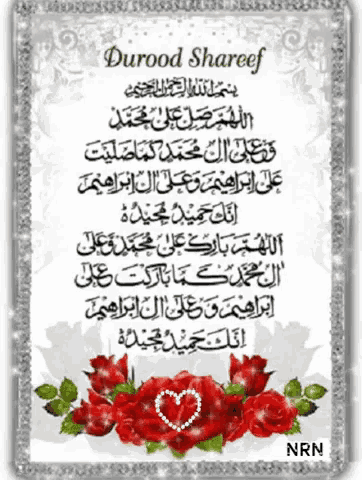 Durood Shareef
بسم الله الرحمن الرحيم
اللهم صل على محمد
وعلى ال محمد كما صليت
على ابراهيم وعلى ال ابراهيم
انك حميد مجيد ه
اللهم بارك على محمد وعلى
ال محمد كما باركت على
ابراهيم وعلى ال ابراهيم
انك حميد مجيد ه
NRN